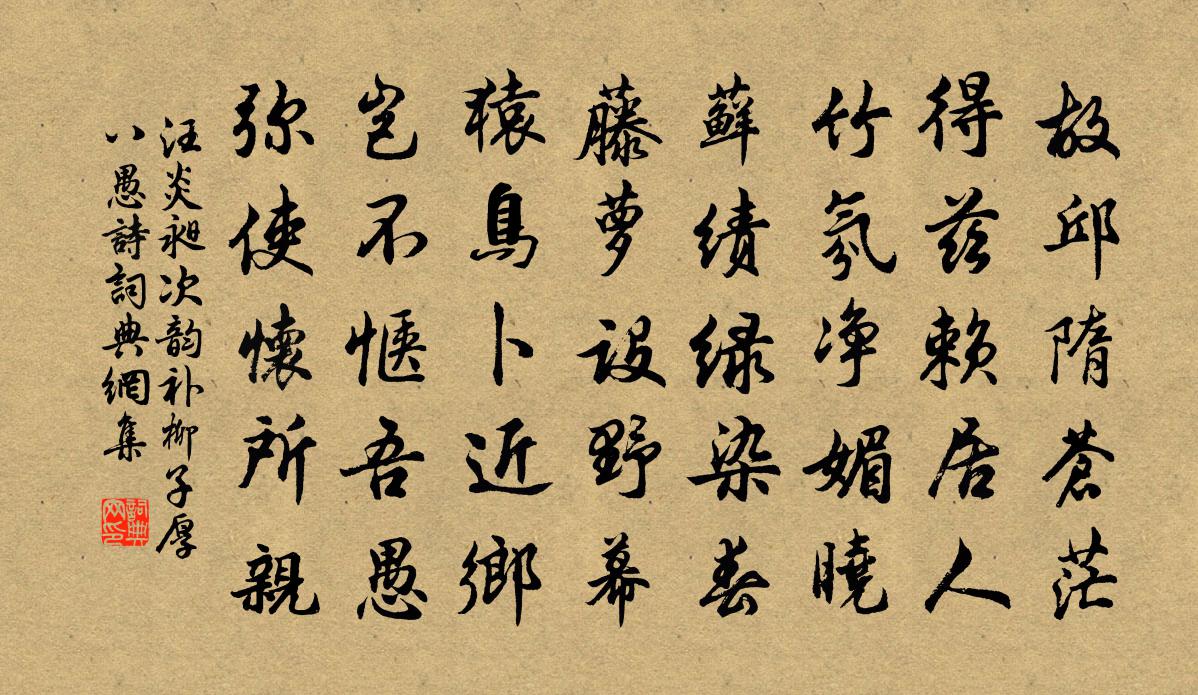 故邱隋蒼茫
得茲赖居人
竹氛净媚曉
蘚绩绿染春
藤萝设野幕
猿鳥卜近鄉
岂不惬吾愚
弥使懷所親
汪炎昶次韵补柳子厚
八愚詩詞典網集
詞典网印